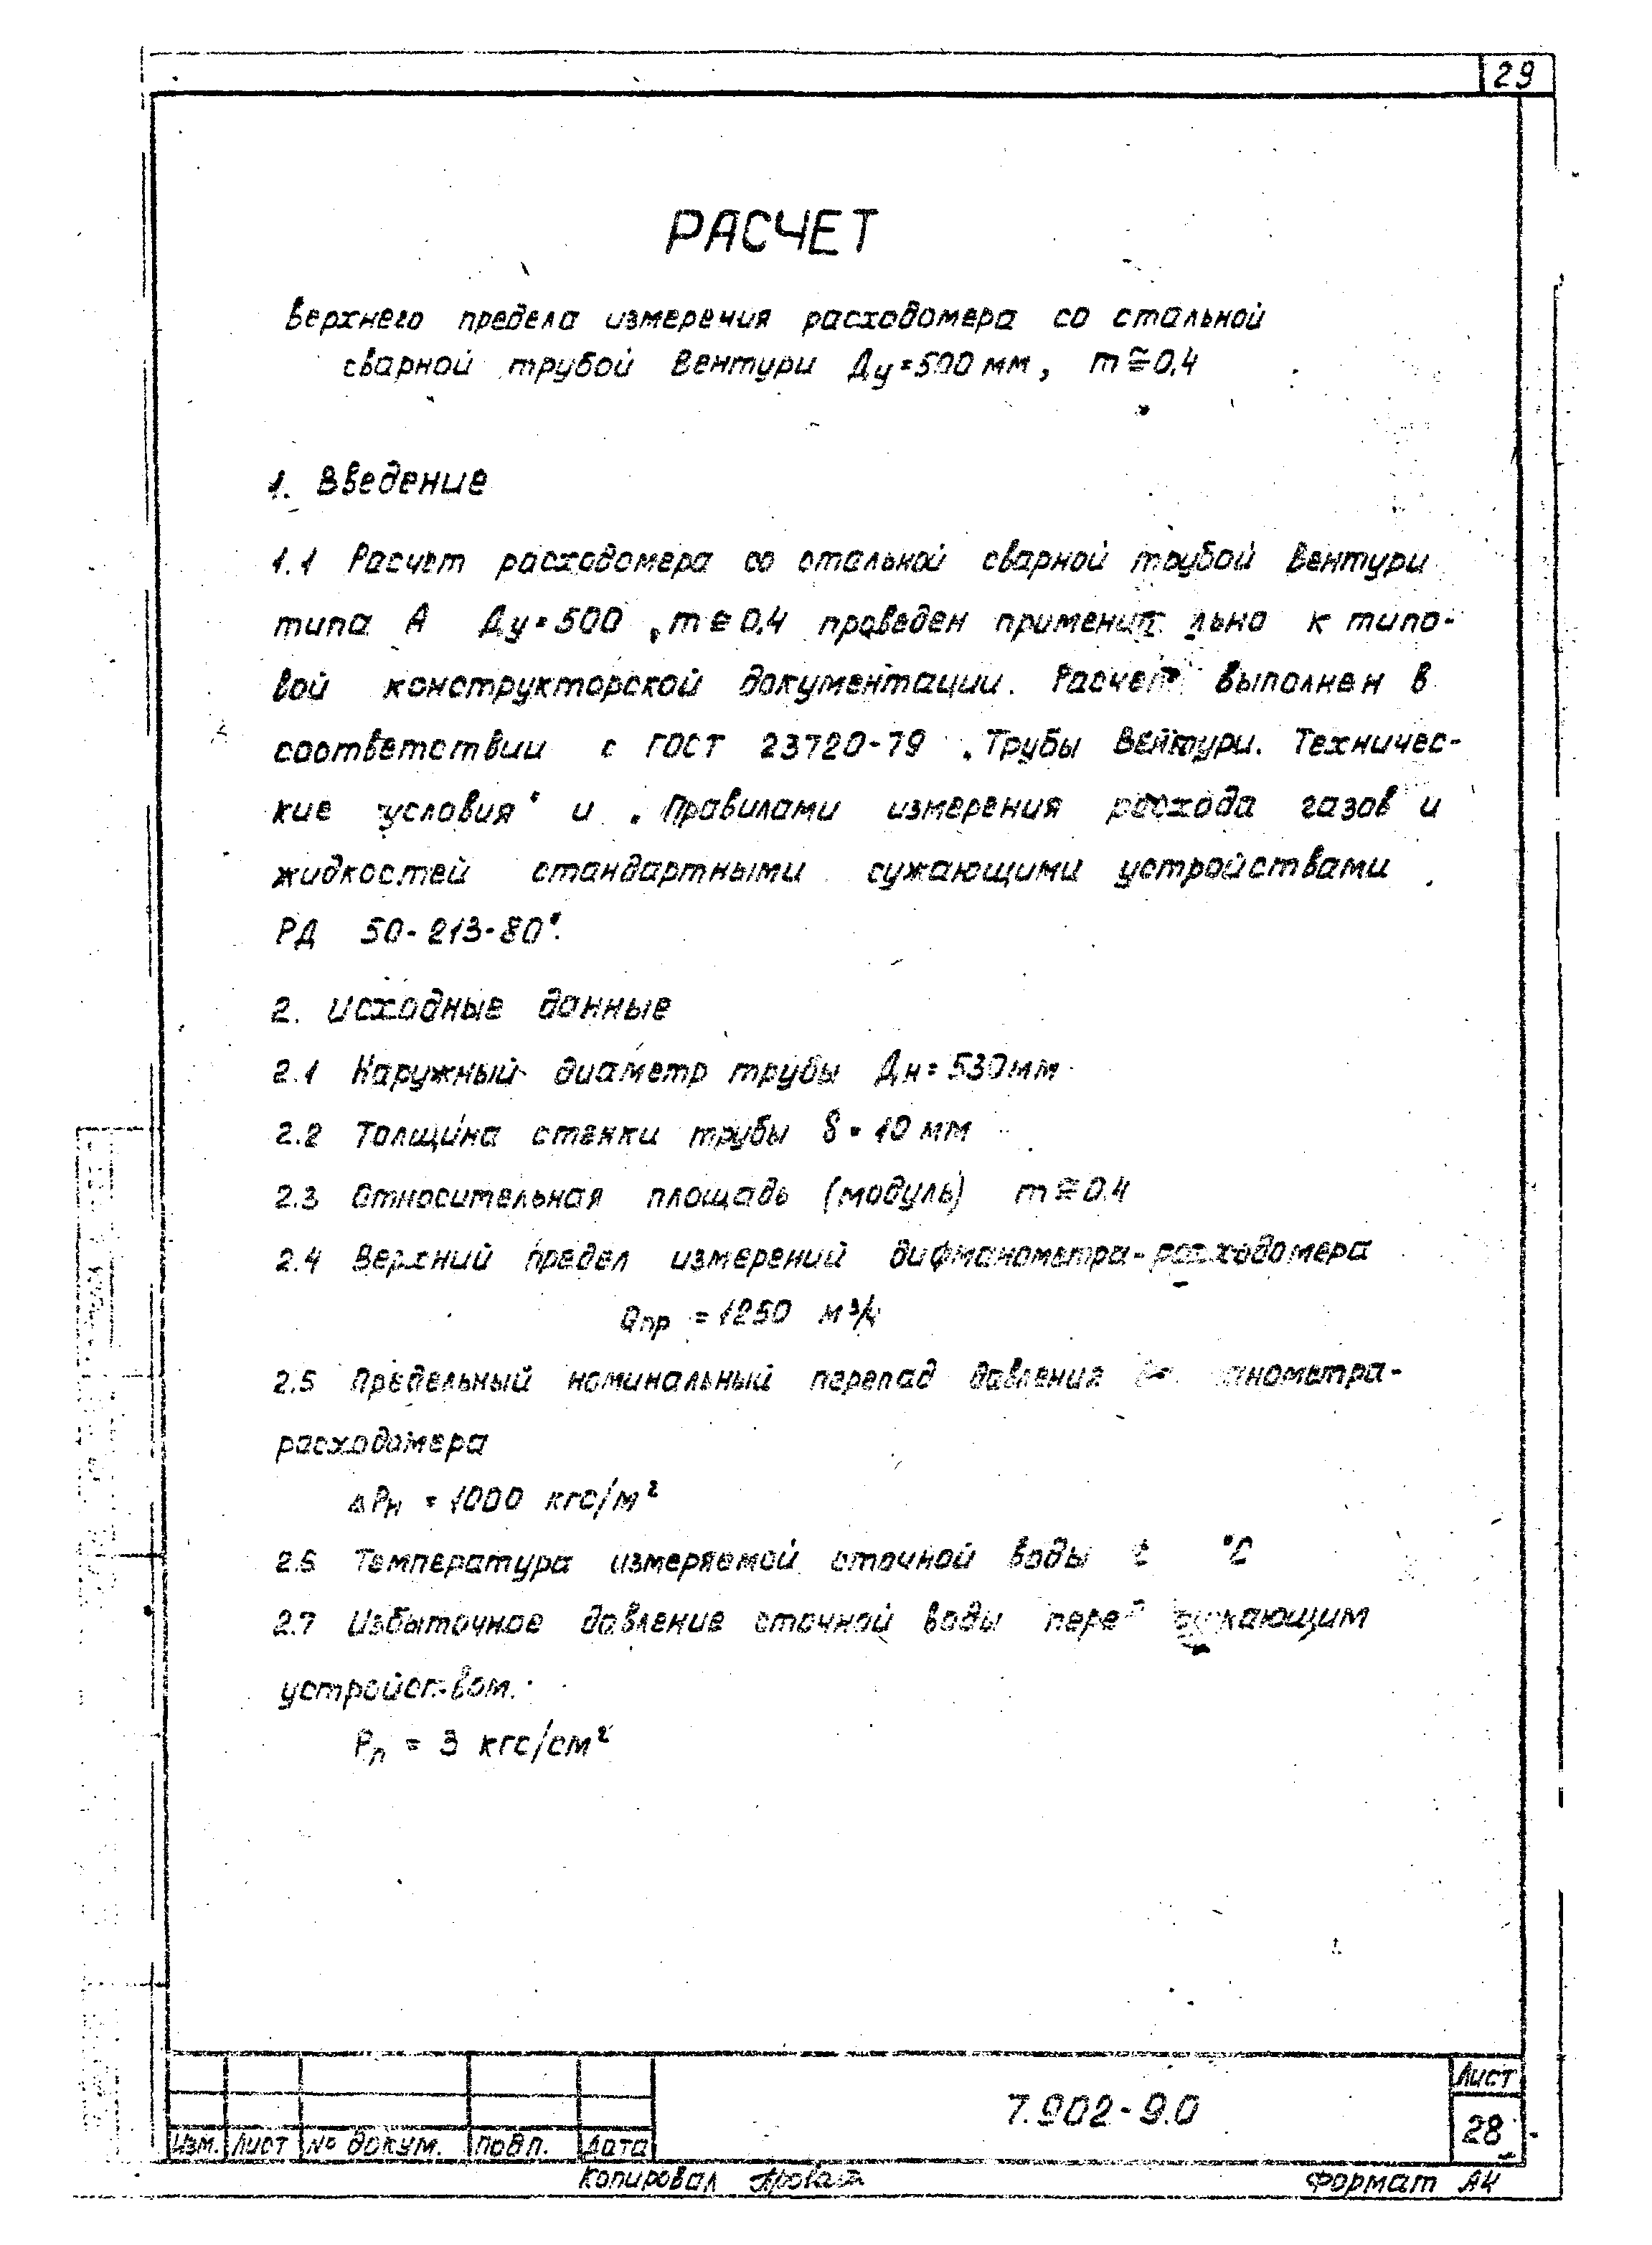 29
РАСЧЕТ
верхнего предела измерения расходомера со стальной
сварной трубой Вентури Ду=500 мм, m≅0,4
1. Введение
1.1 Расчет расходомера со стальной сварной трубой Вентури
типа А Ду=500, m≅0,4 проведен применит льно к типо-
вой конструкторской документации. Расчет выполнен в
соответствии с ГОСТ 23720-79 „Трубы Вентури. Техничес-
кие условия“ и „Правилами измерения расхода газов и
жидкостей стандартными сужающими устройствами
РД 50-213-80“.
2. Исходные данные
2.1 Наружный диаметр трубы Дн=530мм
2.2 Толщина стенки трубы δ=10 мм
2.3 Относительная площадь (модуль) m≅0.4
2.4 Верхний предел измерений дифманометра-расходомера
Qпр = 1250 м³/ч
2.5 Предельный номинальный перепад давления анометра-
расходомера
ΔРн = 1000 кгс/м²
2.6 Температура измеряемой сточной воды t °С
2.7 Избыточное давление сточной воды перед сужающим
устройством.
Рп = 3 кгс/см²
7.902-9.0
Лист
28
Изм. Лист № докум. Подп. Дата
Копировал
Формат А4